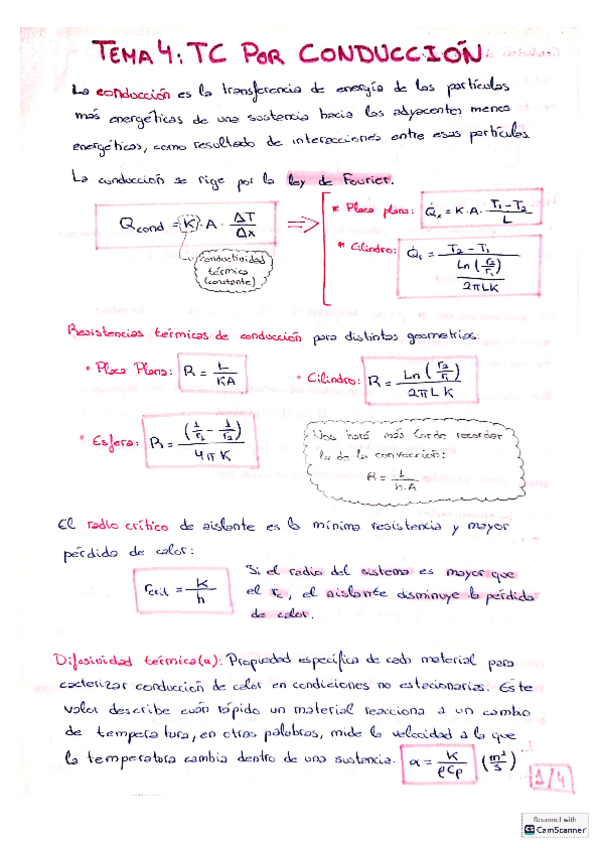 TEMA 4: TC POR CONDUCCIÓN
La conducción es la transferencia de energía de las partículas
más energéticas de una sustancia hacia las adyacentes menos
energéticas, como resultado de interacciones entre esas partículas
La conducción se rige por la ley de Fourier.
Qcond = K · A · ΔT/Δx ⇒
conductividad
térmica
(constante)
* Placa plana: Q̇x = K · A · (T1 - T2)/L
* Cilindro: Q̇r = (T2 - T1)/(Ln(r2/r1)/(2πLK))
Resistencias térmicas de conducción para distintas geometrías:
• Placa Plana: R = L/(KA)
• Cilindro: R = Ln(r2/r1)/(2πLK)
• Esfera: R = (1/r1 - 1/r2)/(4πK)
Nos hará más tarde recordar
la de la convección:
R = 1/(h·A)
El radio crítico de aislante es la mínima resistencia y mayor
pérdida de calor:
rcrit = K/h
Si el radio del sistema es mayor que
el rc, el aislante disminuye la pérdida
de calor.
Difusividad térmica(α): Propiedad específica de cada material para
caracterizar conducción de calor en condiciones no estacionarias. Este
valor describe cuán rápido un material reacciona a un cambio
de temperatura, en otras palabras, mide la velocidad a la que
la temperatura cambia dentro de una sustancia. α = K/(ρCp) (m²/s)
1/4
Scanned with
CS CamScanner